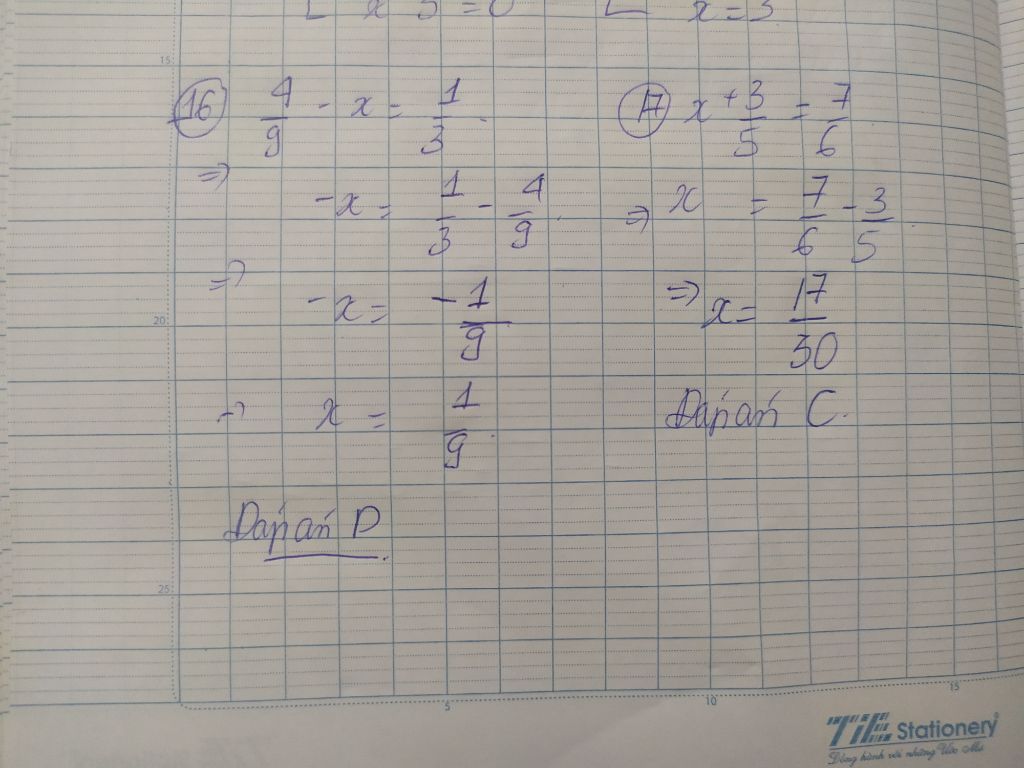 x 3 = 0
x = 3
15
16 4/9 - x = 1/3
⇒ -x = 1/3 - 4/9
⇒ -x = -1/9
⇒ x = 1/9
Đáp án D
17 x + 3/5 = 7/6
⇒ x = 7/6 - 3/5
⇒ x = 17/30
Đáp án C.
20
25
5
10
15
TiE Stationery
Đồng hành với những Ước Mơ